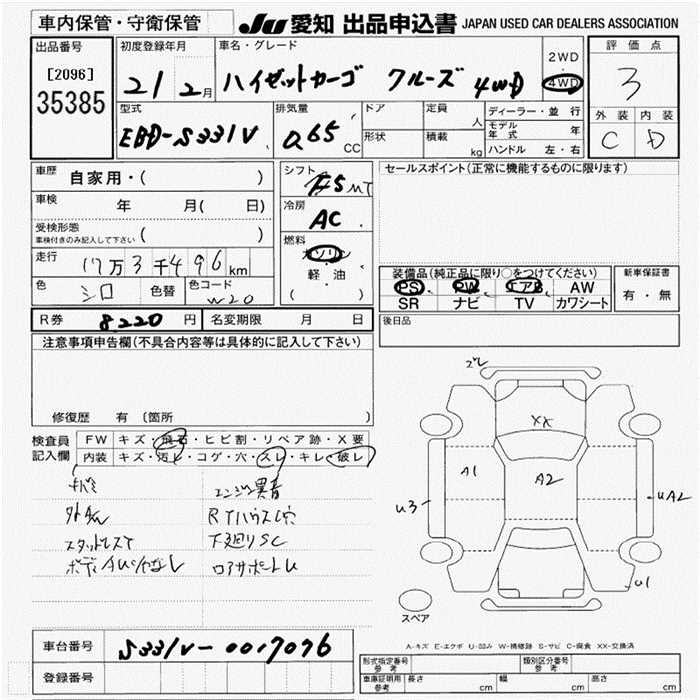 車内保管・守衛保管
JU 愛知 出品申込書 JAPAN USED CAR DEALERS ASSOCIATION
出品番号
[2096]
35385
初度登録年月
21 2月
車名・グレード
ハイゼットカーゴ クルーズ 4WD
2WD
・
4WD
評価点
3
外装 内装
C D
型式
EBD-S331V
排気量
0.65 CC
ドア
形状
定員
人
積載
kg
ディーラー・並行
モデル年式 年
ハンドル 左・右
車歴 自家用・( )
車検 年 月( 日)
受検形態
車検付きのみ記入して下さい ( )
走行 17万3千496km
色 シロ 色替 色コード W20
シフト F5 MT
冷房 AC
燃料 ガソリン
・
軽油
( )
セールスポイント(正常に機能するものに限ります)
装備品(純正品に限り○をつけてください)
PS PW エアB AW
SR ナビ TV カワシート
新車保証書
有・無
R券 8,220円 名変期限 月 日
後日品
注意事項申告欄(不具合内容等は具体的に記入して下さい)
修復歴 有 (箇所 )
検査員記入欄
FW キズ・飛石・ヒビ割・リペア跡・X要
内装 キズ・汚レ・コゲ・穴・スレ・キレ・破レ
エンジン異音
外AW RTハウス穴
スタッドレスT 下廻りSC
リアサポートU
XX
A1
A2
U3
UA2
U1
スペア
A-キズ E-エクボ U-凹み W-補修跡 S-サビ C-腐食 XX-交換済
車台番号 S331V-0017096
登録番号
形式指定番号
参考
類別区分番号
参考
車庫証明用
参考
長さ cm 幅 cm 高さ cm